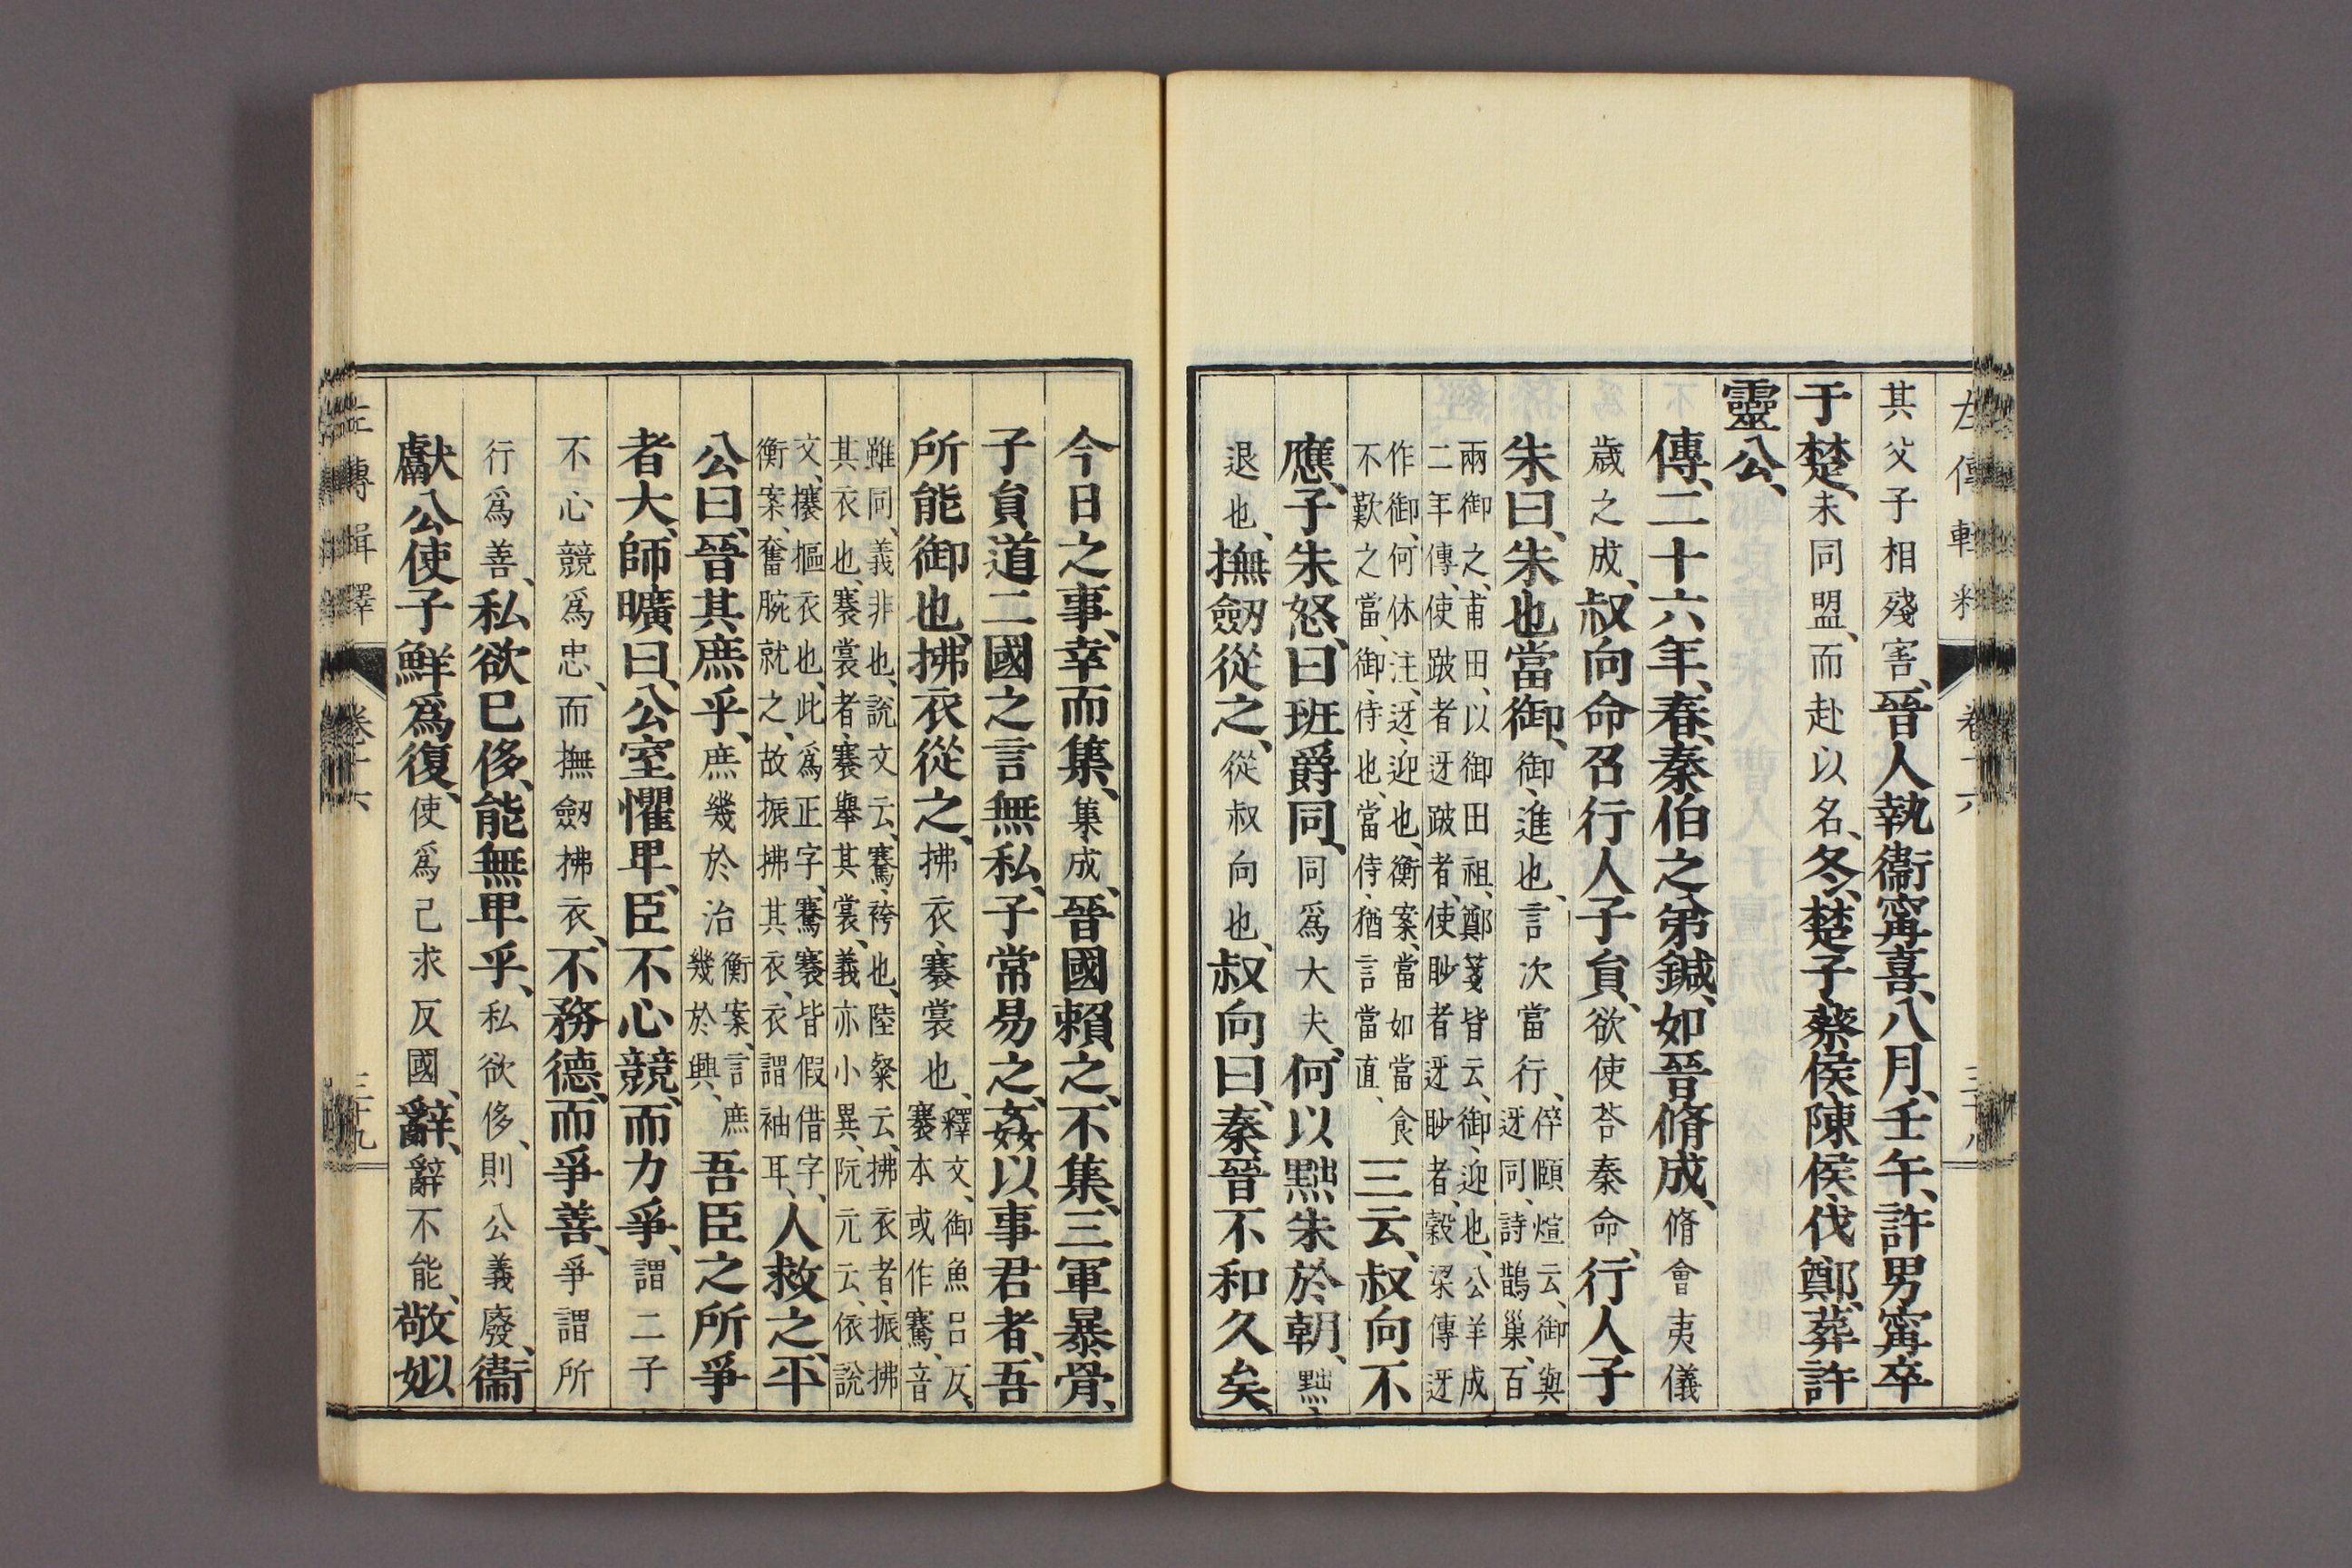 左傳輯釋 卷十六
其父子相殘害、晉人執衞甯喜、八月、壬午、許男甯卒
于楚、未同盟、而赴以名、冬、楚子、蔡侯、陳侯、伐鄭、葬許
靈公、
傳、二十六年、春、秦伯之弟鍼、如晉脩成、脩會夷儀
歲之成、叔向命召行人子員、欲使荅秦命、行人子
朱曰、朱也當御、御、進也、言次當行、倅頤煊云、御與
迓同、詩鵲巢、百
兩御之、甫田、以御田祖、鄭箋皆云、御、迎也、公羊成
二年傳、使跛者迓跛者、使眇者迓眇者、穀梁傳迓
作御、何休注、迓、迎也、衡案、當如當食
不歎之當、御、侍也、當侍、猶言當直、
三云、叔向不
應、子朱怒、曰班爵同、同爲大夫、何以黜朱於朝、黜、
退也、撫劒從之、從叔向也、叔向曰、秦晉不和久矣、
今日之事、幸而集、集、成、晉國賴之、不集、三軍暴骨、
子員道二國之言無私、子常易之、姦以事君者、吾
所能御也、拂衣從之、拂衣、褰裳也、釋文、御魚呂反、
褰本或作騫、音
雖同、義非也、說文云、騫、袴也、陸粲云、拂衣者、振拂
其衣也、褰裳者、褰舉其裳、義亦小異、阮元云、依說
文、攘摳衣也、此爲正字、騫褰皆假借字、
衡案、奮腕就之、故振拂其衣、衣謂袖耳、
人救之、平
公曰、晉其庶乎、庶幾於治
衡案、言庶
幾於興、
吾臣之所爭
者大、師曠曰、公室懼卑、臣不心競、而力爭、謂二子
不心競爲忠、而撫劒拂衣、不務德、而爭善、爭謂所
行爲善、私欲已侈、能無卑乎、私欲侈、則公義廢、衞
獻公使子鮮爲復、使爲己求反國、辭、辭不能、敬姒